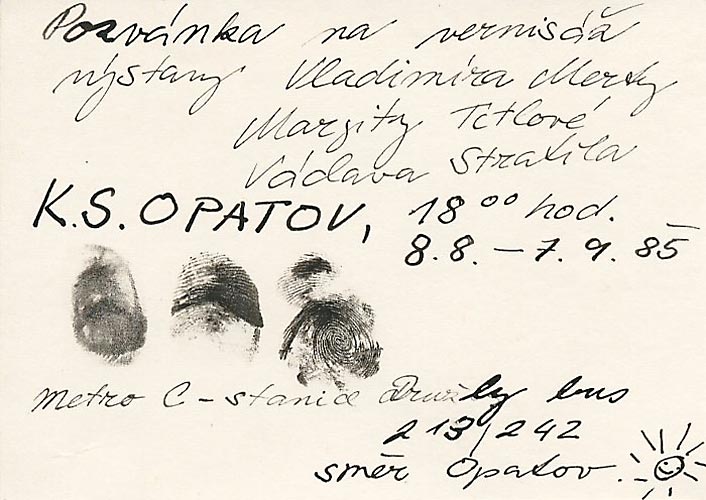 Pozvánka na vernisáž
výstavy Vladimíra Merty
Margity Titlové
Václava Stratila
K.S. OPATOV, 18⁰⁰ hod.
8.8. – 7.9. 85
metro C – stanice Družby bus
213, 242
směr Opatov.